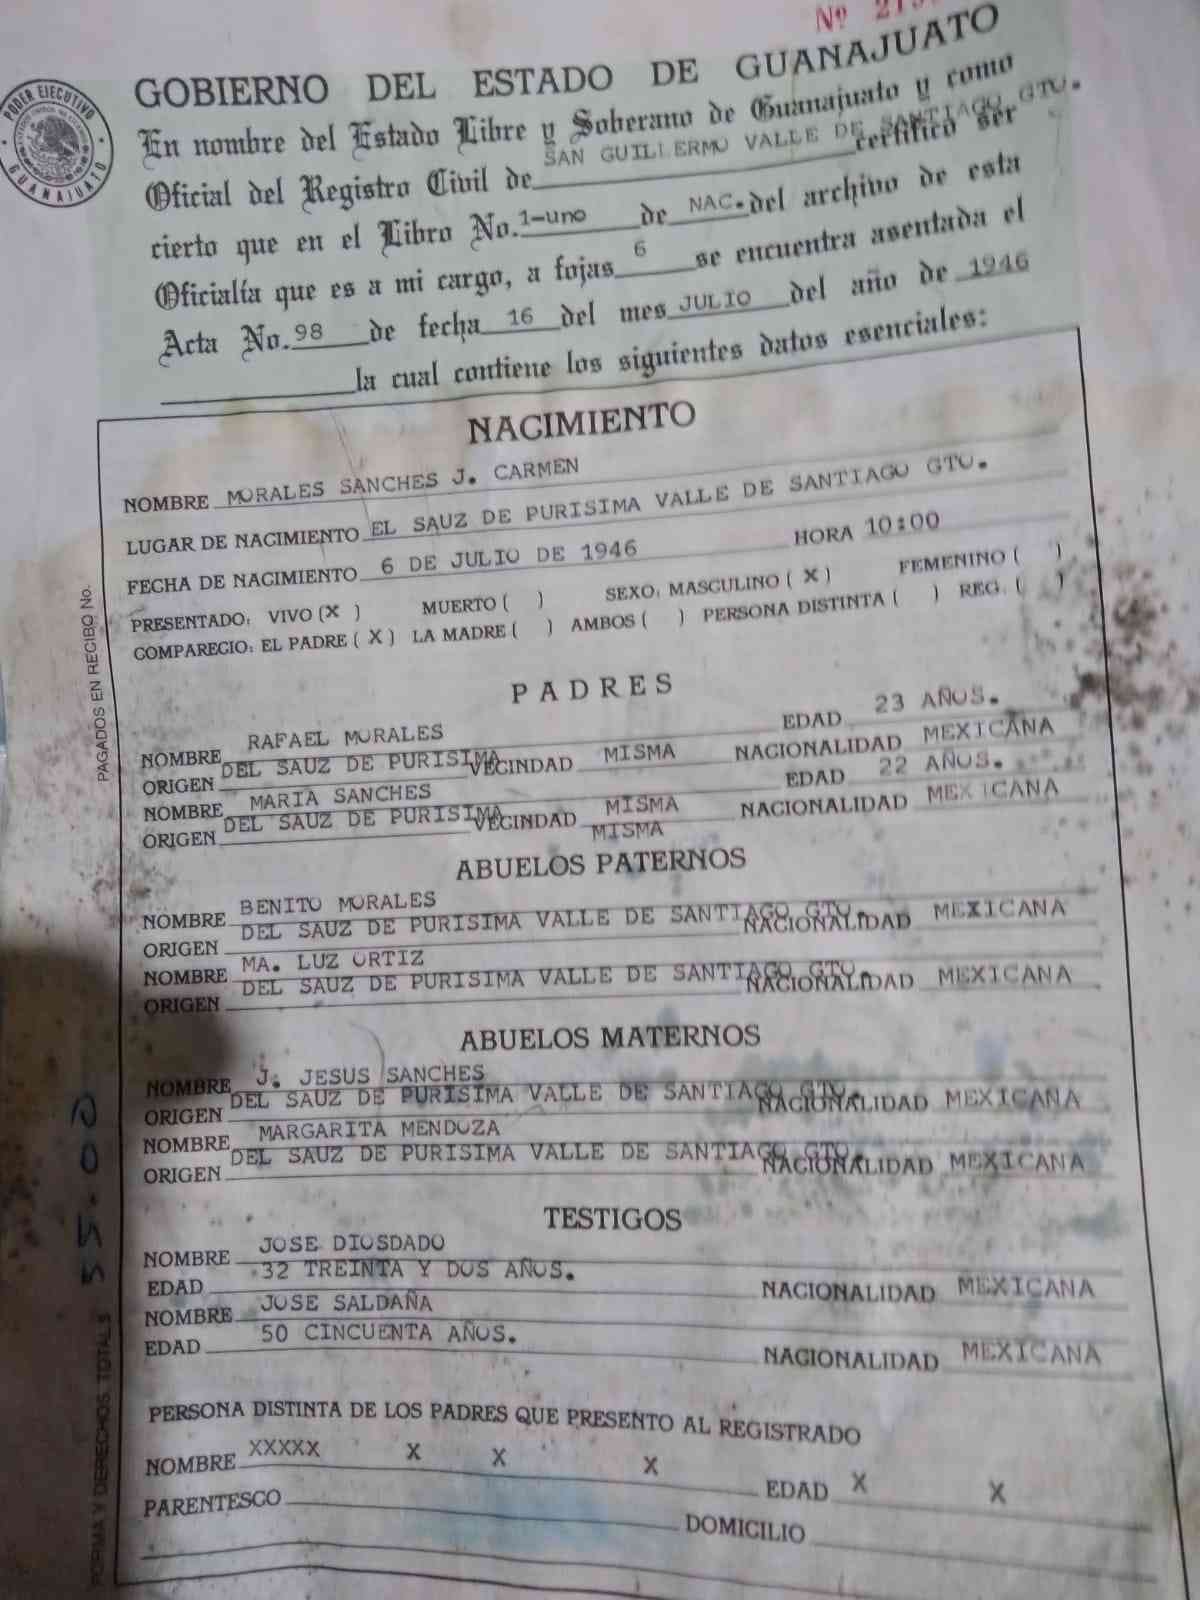 Nº
PODER EJECUTIVO
GUANAJUATO
GOBIERNO DEL ESTADO DE GUANAJUATO
En nombre del Estado Libre y Soberano de Guanajuato y como
SAN GUILLERMO VALLE DE SANTIAGO GTO.
Oficial del Registro Civil de certifico ser
cierto que en el Libro No. 1-uno de NAC. del archivo de esta
Oficialía que es a mi cargo, a fojas 6 se encuentra asentada el
Acta No. 98 de fecha 16 del mes JULIO del año de 1946
la cual contiene los siguientes datos esenciales:
NACIMIENTO
NOMBRE MORALES SANCHES J. CARMEN
LUGAR DE NACIMIENTO EL SAUZ DE PURISIMA VALLE DE SANTIAGO GTO.
FECHA DE NACIMIENTO 6 DE JULIO DE 1946 HORA 10:00
PRESENTADO: VIVO (X) MUERTO ( ) SEXO: MASCULINO (X) FEMENINO ( )
COMPARECIO: EL PADRE (X) LA MADRE ( ) AMBOS ( ) PERSONA DISTINTA ( ) REG. ( )
PADRES
NOMBRE RAFAEL MORALES EDAD 23 AÑOS.
ORIGEN DEL SAUZ DE PURISIMA VECINDAD MISMA NACIONALIDAD MEXICANA
NOMBRE MARIA SANCHES EDAD 22 AÑOS.
ORIGEN DEL SAUZ DE PURISIMA VECINDAD MISMA NACIONALIDAD MEXICANA
MISMA
ABUELOS PATERNOS
NOMBRE BENITO MORALES
ORIGEN DEL SAUZ DE PURISIMA VALLE DE SANTIAGO GTO. NACIONALIDAD MEXICANA
NOMBRE MA. LUZ ORTIZ
ORIGEN DEL SAUZ DE PURISIMA VALLE DE SANTIAGO GTO. NACIONALIDAD MEXICANA
ABUELOS MATERNOS
NOMBRE J. JESUS SANCHES
ORIGEN DEL SAUZ DE PURISIMA VALLE DE SANTIAGO GTO. NACIONALIDAD MEXICANA
NOMBRE MARGARITA MENDOZA
ORIGEN DEL SAUZ DE PURISIMA VALLE DE SANTIAGO GTO. NACIONALIDAD MEXICANA
TESTIGOS
NOMBRE JOSE DIOSDADO
EDAD 32 TREINTA Y DOS AÑOS. NACIONALIDAD MEXICANA
NOMBRE JOSE SALDAÑA
EDAD 50 CINCUENTA AÑOS. NACIONALIDAD MEXICANA
PERSONA DISTINTA DE LOS PADRES QUE PRESENTO AL REGISTRADO
NOMBRE XXXXX X X X EDAD X X
PARENTESCO DOMICILIO
PAGADOS EN RECIBO No.
FORMA Y DERECHOS TOTAL $ 55.00